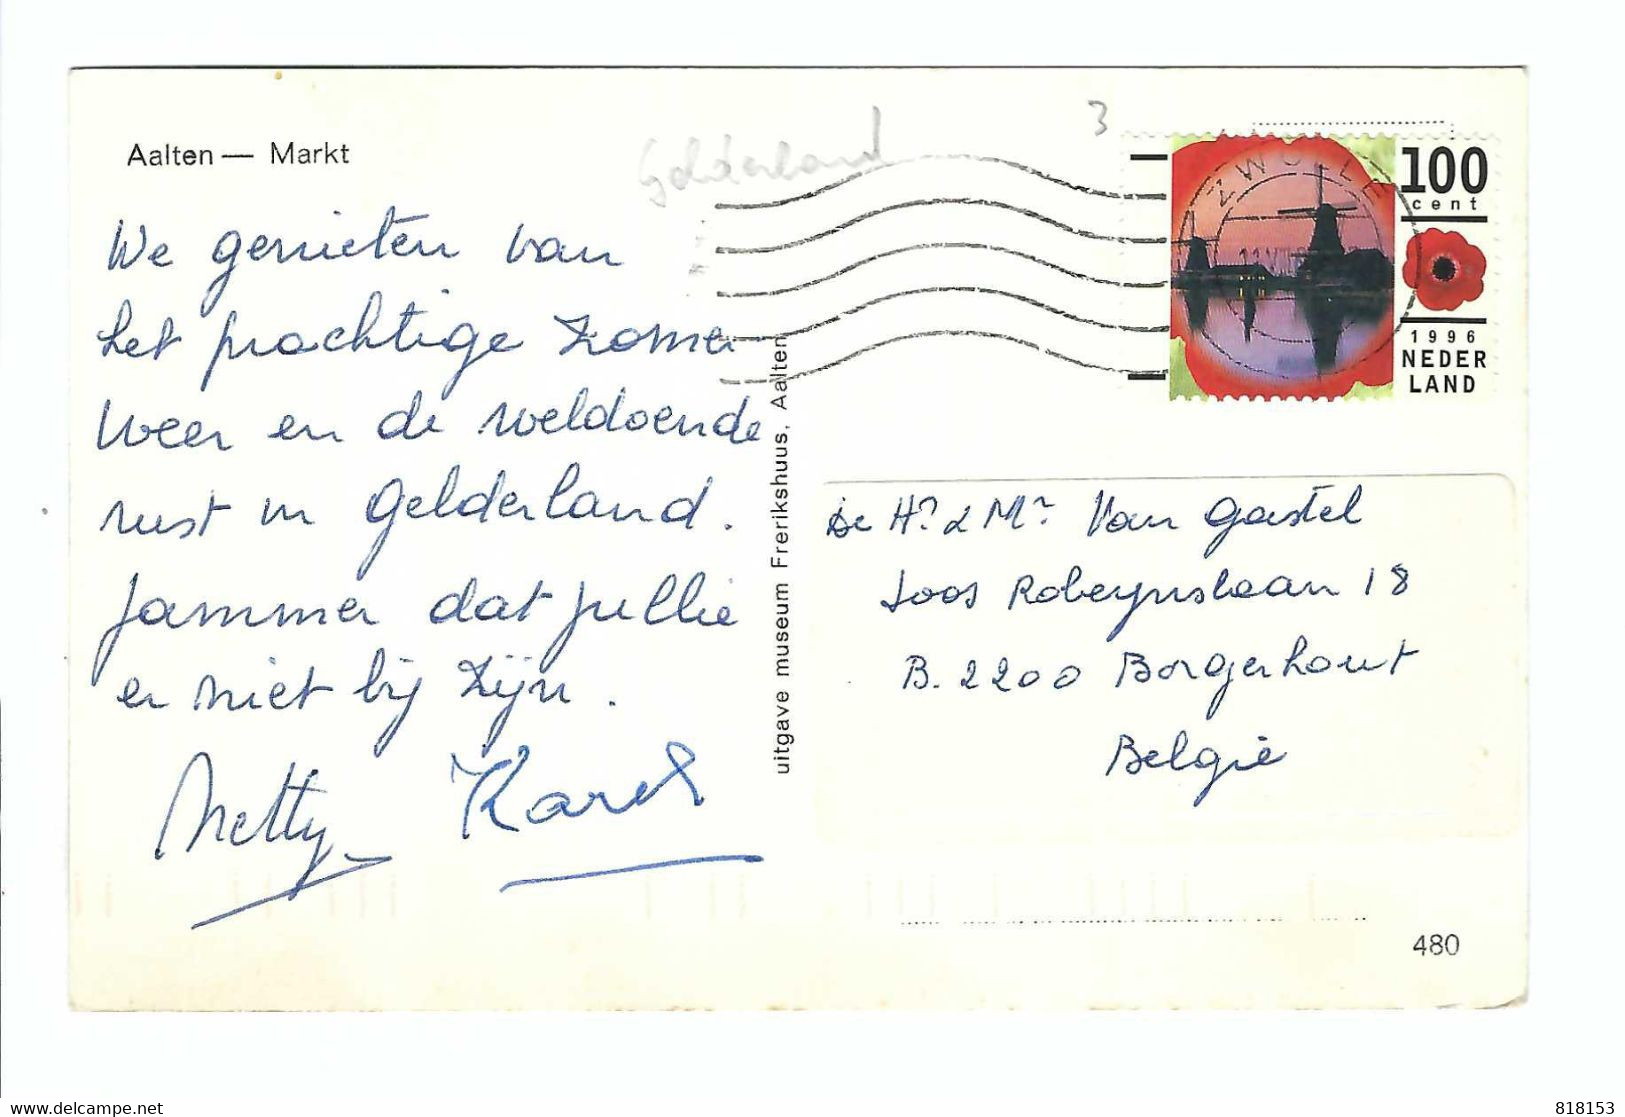 Gelderland 3
Aalten — Markt
We genieten van
het prachtige zomer
weer en de weldoende
rust in Gelderland.
Jammer dat jullie
er niet bij zijn.
Netty Karel
uitgave museum Frerikshuus, Aalten
ZWOLLE
100
cent
1996
NEDER
LAND
De Hr & Mr Van Gastel
Joos Robeynslaan 18
B. 2200 Borgerhout
België
480
www.delcampe.net
818153